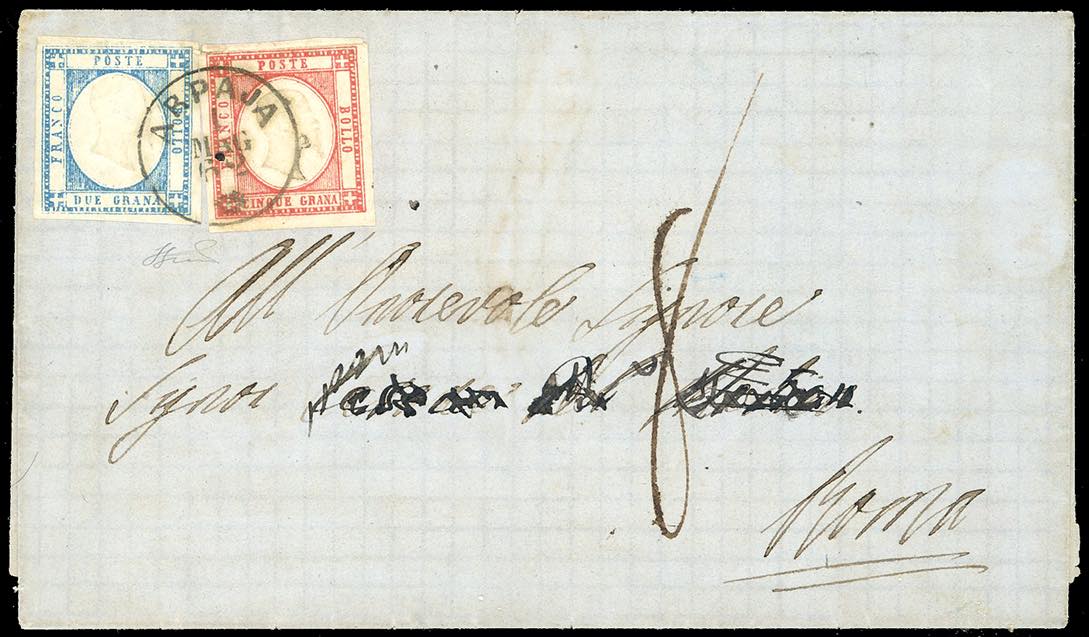 POSTE
FRANCO
BOLLO
DUE GRANA
POSTE
FRANCO
BOLLO
CINQUE GRANA
ARPAJA
1
MAG
62
All' Onorevole Signore
Signor
8
Roma